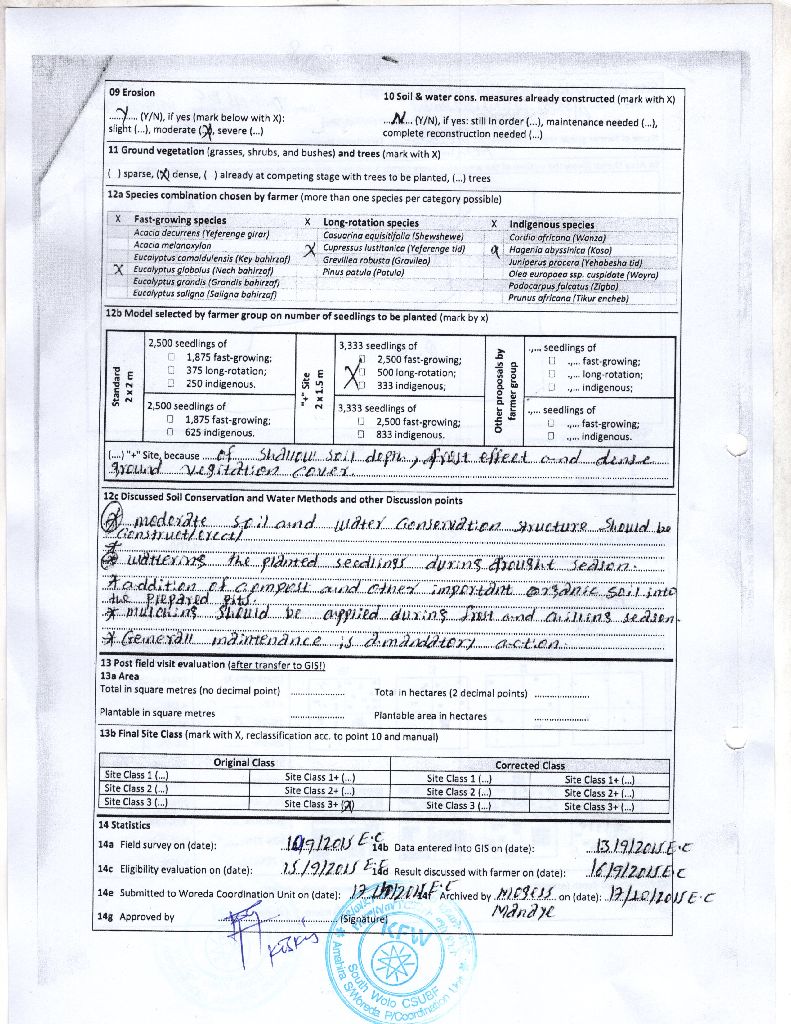 09 Erosion
10 Soil & water cons. measures already constructed (mark with X)
...Y... (Y/N), if yes (mark below with X):
slight (...), moderate (X), severe (...)
...N... (Y/N), if yes: still in order (...), maintenance needed (...),
complete reconstruction needed (...)
11 Ground vegetation (grasses, shrubs, and bushes) and trees (mark with X)
( ) sparse, (X) dense, ( ) already at competing stage with trees to be planted, (...) trees
12a Species combination chosen by farmer (more than one species per category possible)
X Fast-growing species
Acacia decurrens (Yeferenge girar)
Acacia melanoxylon
Eucalyptus camaldulensis (Key bahirzaf)
X Eucalyptus globolus (Nech bahirzaf)
Eucalyptus grandis (Grandis bahirzaf)
Eucalyptus saligna (Saligna bahirzaf)
X Long-rotation species
Casuarina equisitifolia (Shewshewe)
X Cupressus lustitanica (Yeferenge tid)
Grevillea robusta (Gravilea)
Pinus patula (Patula)
X Indigenous species
Cordia africana (Wanza)
Hagenia abyssinica (Koso)
Juniperus procera (Yehabesha tid)
Olea europaea ssp. cuspidate (Woyra)
Podocarpus falcatus (Zigba)
Prunus africana (Tikur encheb)
12b Model selected by farmer group on number of seedlings to be planted (mark by x)
Standard
2 x 2 m
2,500 seedlings of
1,875 fast-growing;
375 long-rotation;
250 indigenous.
2,500 seedlings of
1,875 fast-growing;
625 indigenous.
"+" Site
2 x 1.5 m
3,333 seedlings of
2,500 fast-growing;
X 500 long-rotation;
333 indigenous;
3,333 seedlings of
2,500 fast-growing;
833 indigenous.
Other proposals by
farmer group
.,... seedlings of
.,... fast-growing;
.,... long-rotation;
.,... indigenous;
.,... seedlings of
.,... fast-growing;
.,... indigenous.
(....) "+" Site, because of shallow soil deph, frost effect and dense
ground vegitation cover
12c Discussed Soil Conservation and Water Methods and other Discussion points
* moderate soil and water conservation structure should be
construct/erect/
* wattering the planted seedlings during drought season.
* addition of compost and other important organic soil into
the prepared pits.
* mulching should be applied during frost and season
* Generall maintenance is amandatory action.
13 Post field visit evaluation (after transfer to GIS!)
13a Area
Total in square metres (no decimal point) ..................
Total in hectares (2 decimal points) ..................
Plantable in square metres ..................
Plantable area in hectares ..................
13b Final Site Class (mark with X, reclassification acc. to point 10 and manual)
Original Class Corrected Class
Site Class 1 (...) Site Class 1+ (...) Site Class 1 (...) Site Class 1+ (...)
Site Class 2 (...) Site Class 2+ (...) Site Class 2 (...) Site Class 2+ (...)
Site Class 3 (...) Site Class 3+ (X) Site Class 3 (...) Site Class 3+ (...)
14 Statistics
14a Field survey on (date): /9/2015 E.C
14b Data entered into GIS on (date): 13/9/2015 E.C
14c Eligibility evaluation on (date): 15/9/2015 E.C
14d Result discussed with farmer on (date): 16/9/2015 E.C
14e Submitted to Woreda Coordination Unit on (date): E.C
14f Archived by Mogess on (date): 17/10/2015 E.C
Mandye
14g Approved by .................. (Signature)
KFW
South Wolo CSUBF